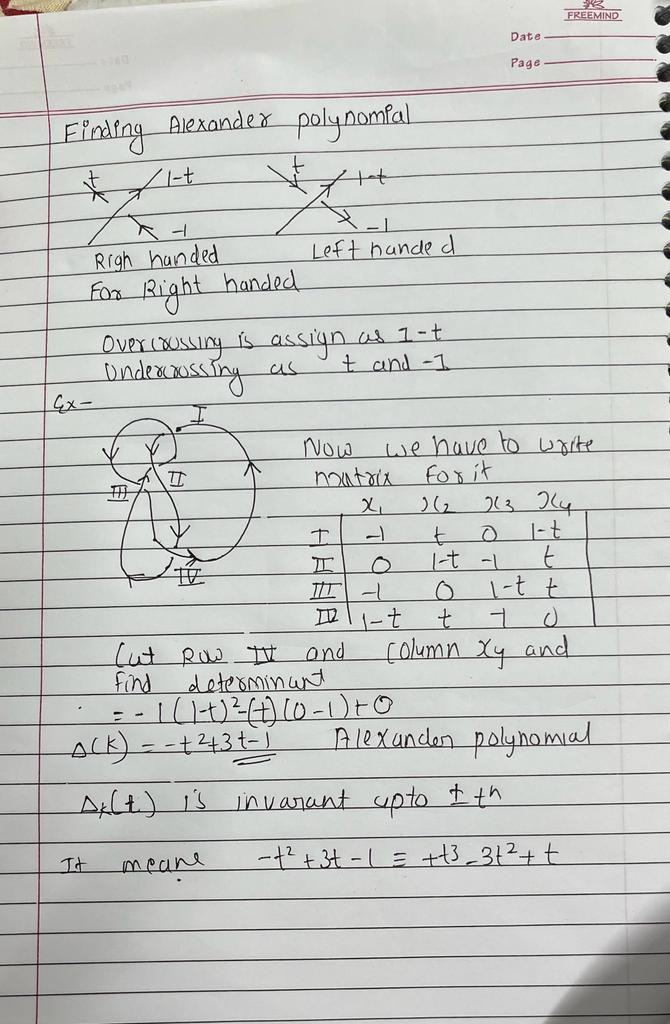 FREEMIND
Date
Page
Finding Alexander polynomial
t 1-t t 1-t
-1 -1
Righ handed Left handed
For Right handed
Overcrossing is assign as 1-t
Undercrossing as t and -1
Ex-
I
Now we have to write
II
matrix for it
III
x₁ x₂ x₃ x₄
I -1 t 0 1-t
II 0 1-t -1 t
IV
III -1 0 1-t t
IV 1-t t -1 0
Cut Row IV and column x₄ and
find determinant
= -1(1-t)²-(t)(0-1)+0
Δ(K) = -t²+3t-1 Alexander polynomial
Δₖ(t) is invarant upto ± tⁿ
It means -t²+3t-1 ≡ +t³-3t²+t